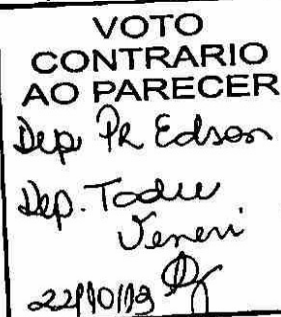 VOTO
CONTRARIO
AO PARECER
Dep. PR Edson
Dep. Tadeu
Veneri
22/10/13